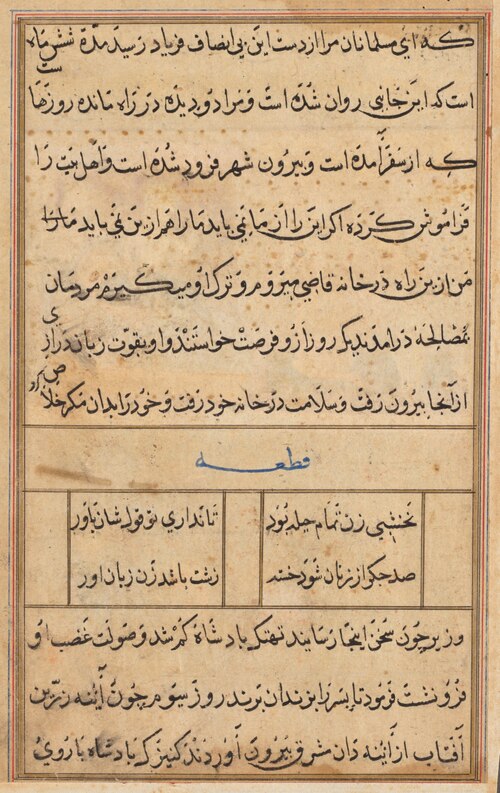 که ای مسلمانان مرا از دست این بی انصاف فریاد رسید مدة شش ماه
است که این جانبی روان شده است و مرا دو دیده در راه مانده روزها
که از سفر آمده است و بیرون شهر فرود شده است و اهل بیت را
فراموش کرده اکر این را از ما نمی باید ما را هم از بن نمی باید
من ازین راه در خانه قاضی میروم و ترک او میکیرم مردمان
بمصالحه در آمدند یک روز ازو فرصت خواستند و او بقوت زبان درازی
از آنجا بیرون رفت و سلامت در خانه خود رفت و خود را بدان مکر خلاص
قطعه
نخشبی زن تمام حیله بود
تا نداری تو قول شان باور
صد جکر از زنان شود خسته
زشت باشد زن زبان اور
وزیر چون سخن اینجا رسانید تهتک بادشاه کم شد و صولت غضب او
فرو نشست فرمود تا پسر را بزندان برند روز سیوم چون آینه زرین
آفتاب از آینه دان مشرق بیرون آوردند کنیزک بادشاه با روی